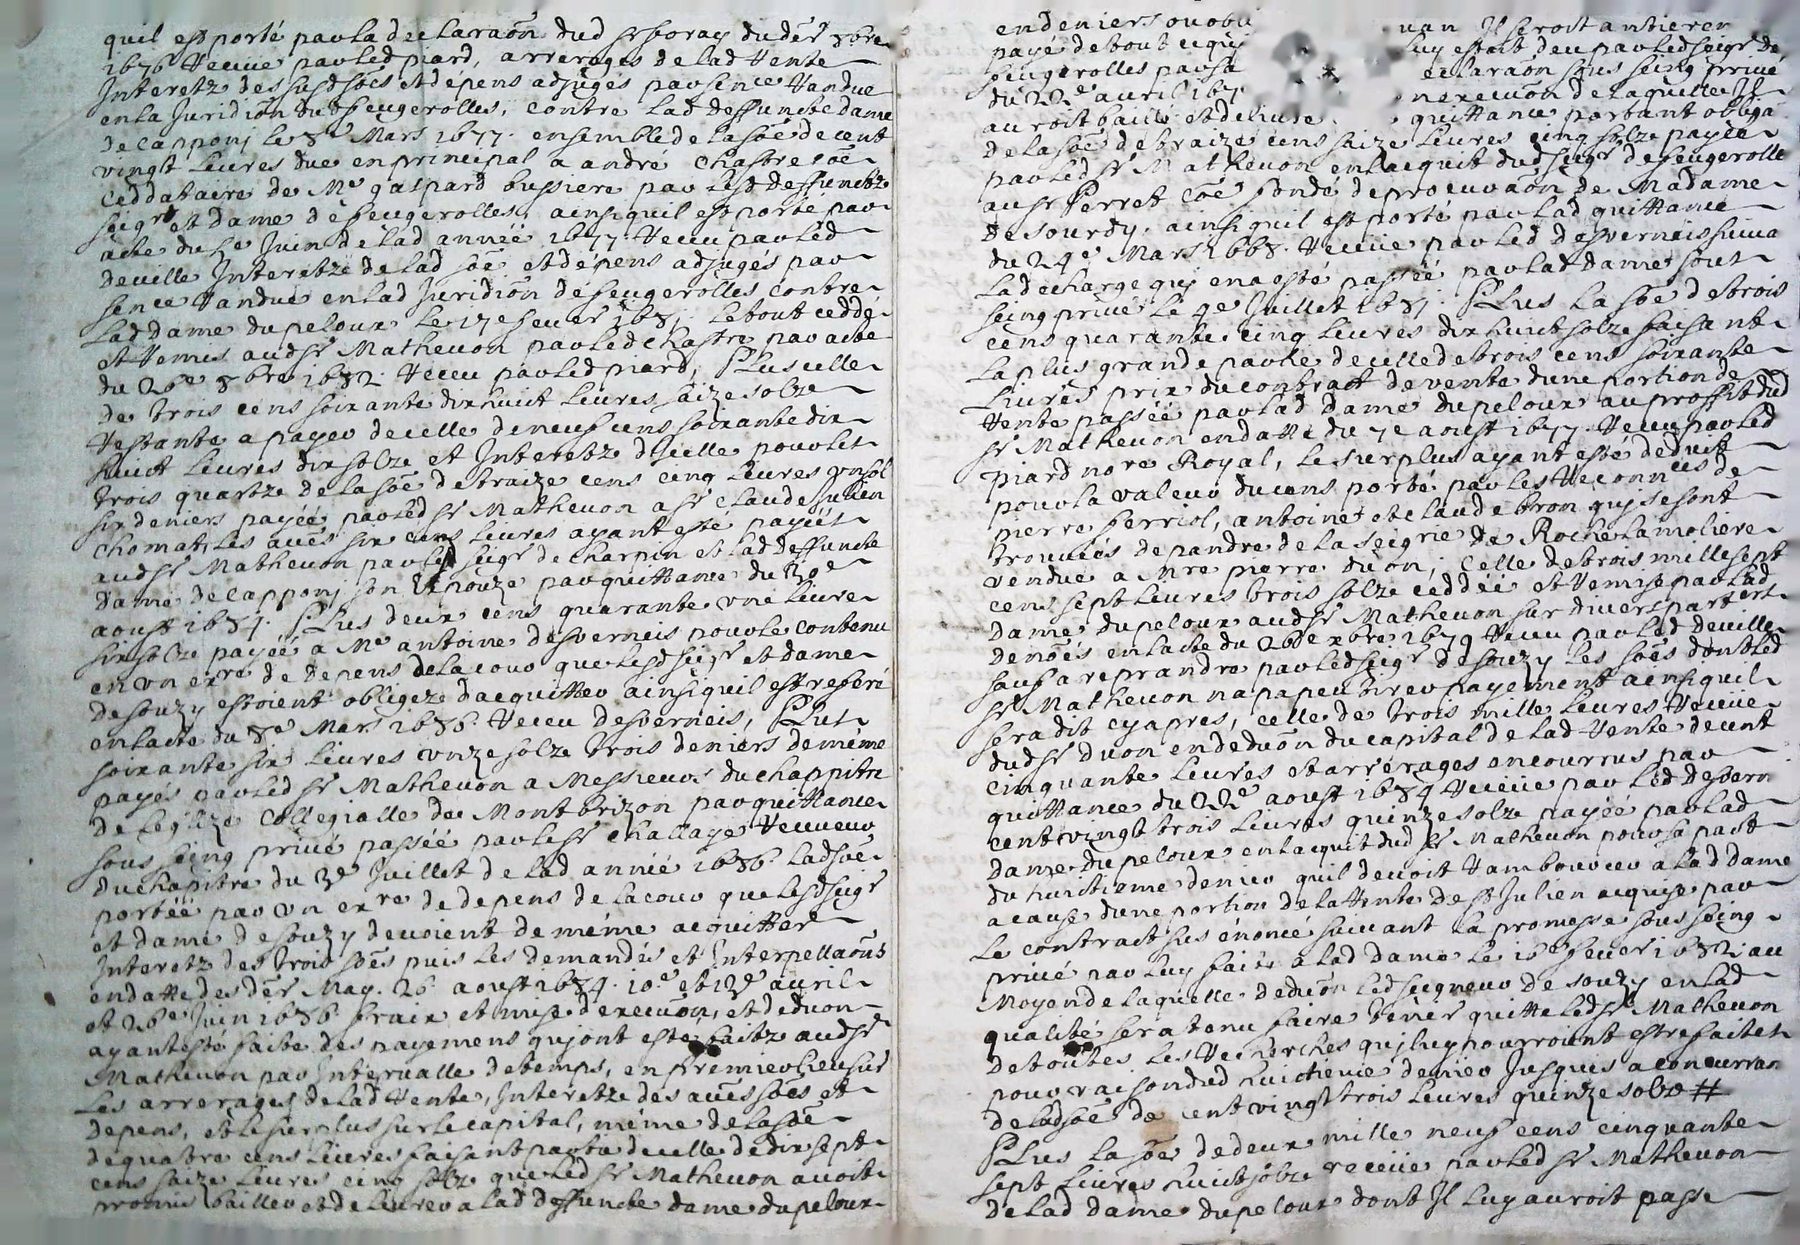 quil est porté par la declaraõn dud sr foray du dēr xbre
1676 receue par led piard, arrerages de lad rente
Interetz des susd soēs et depens adjugés par sence randue
en la Juridiõn dud feugerolles, contre lad deffuncte dame
de capponj le 8e Mars 1677. ensemble de la soē de cent
vingt liures due en principal a andré chastre coē
ceddataire de Me gaspard bussiere par lesd deffunctz
seigr et dame de feugerolles, ainsi quil est porté par
acte du Juin de lad année 1677. receu par led
deuille Interetz de lad soē et dépens adjugés par
sence randue en lad Juridiõn de feugerolles contre
Lad dame du peloux le 17e feuer 1681. le tout ceddé
et remis aud sr Matheuon par led chastre par acte
du 26e 8bre 1682. receu par led piard, Plus celle
de trois cens soixante dix huict liures saize solz
restante a payer de celle de neuf cens soixante dix
huict liures dix solz et Interetz dIcelle pour les
trois quartz de la soē de traize cens cinq liures un sol
six deniers payéé par led sr Matheuon a sr claude Julien
chomat, les aues six cens liures ayant esté payéés
aud sr Matheuon par led seigr de charpin et lad deffuncte
dame de capponj son Epouze par quittance du 30e
aoust 1684. Plus deux cens quarante une liure
six solz payéé a Me antoine desverneis pour le contenu
en un exre de depens de la cour que lesd seigr et dame
de souzy estoient obligez dacquitter ainsi quil est referé
en lacte du 8e Mars 1686 receu desverneis, Plus
soixante six liures unze solz trois deniers de méme
payés par led sr Matheuon a Messieurs du chappitre
de leglize collegialle de Montbrizon par quittance
sous seing privé passéé par le sr challaye receueur
du chapitre du 3e Juillet de lad année 1686 lad soē
portéé par un exre de depens de la cour que lesd seigr
et dame de souzy deuoient de méme acquitter
Interetz des trois soēs puis les demandes et Interpellaõns
en datte des dēr May. 26 aoust 1684. 10e et 12e auril
et 26e Juin 1686 fraix et mise dexecuõn, et deduõn
ayant esté faite des payemens quj ont esté faitz aud sr
Matheuon par Interualle de temps, en premier lieu sur
Les arrerages de lad rente, Interetz des aues soēs et
depens, et le surplus sur le capital, méme de la soē
de quatre cens liures faisant partie de celle de dix sept
cens saize liures cinq solz que led sr Matheuon auoit
promis bailler et deliurer a lad deffuncte dame du peloux
en deniers ou obli uan Il seroit antieren
payé de tout ce quj luy estoit deu par led seigr de
feugerolles par sa declaraõn sous seing privé
du 22e auril 167 nexecuõn de laquelle Il
auroit baillé et deliuré quittance portant obliga
de la soē de traize cens saize liures cinq solz payéé
par led sr Matheuon en lacquit dud seigr de feugerolle
au sr Perret coē fondé de procuraõn de Madame
de sourdy, ainsi quil est porté par lad quittance
du 24e Mars 1668. receüe par led desverneis suiua
La decharge quj en a esté passéé par lad dame sout
seing privé le 9e Juillet 1681. Plus la soē de trois
cens quarante cinq liures dix huict solz faisant
La plus grande partie de celle de trois cens soixante
Liures prix du contract de vente dune portion de
rente passéé par lad dame du peloux au proffit dud
sr Matheuon en datte du 7e aoust 1677. receu par led
piard nore Royal, le surplus ayant esté deduit
pour la valeur du cens porté par les reconnces de
pierre ferriol, antoine et claude bron quj se sont
trouués depandre de la seigrie de Roche la moliere
vendue a Mre pierre duon, Celle de trois mille sept
cens sept liures trois solz ceddéé et remise par lad
dame du peloux aud sr Matheuon sur diuers part ers
denoēs en lacte du 26e xbre 1679 receu par led deuille
sauf a reprandre par led seigr de souzy les soēs dont led
sr Matheuon na pa peu tirer payement ainsi quil
sera dit cy apres, celle de trois mille liures receüe
dud sr duon en deduõn du capital de lad rente de cent
cinquante liures et arrérages encourrus par
quittance du 22e aoust 1684 receüe par led desvern
cent vingt trois liures quinze solz payéé par lad
dame du peloux en lacquit dud sr Matheuon pour sa part
du huictieme denier quil deuoit rambourcer a lad dame
a cause dune portion de la rente de st Julien acquise par
Le contract sus énoncé suiuant la promesse sous seing
privé par luy faite a lad dame le 16e feuer 1682. au
Moyen de laquelle deduõn led seigneur de souzy en lad
qualité sera tenu faire tenir quitte led sr Matheuon
de toutes les recherches quj luy pourroient estre faites
pour raison dud huictieme denier Jusques a concurran
de lad soē de cent vingt trois liures quinze solz #
Plus la soē de deux mille neuf cens cinquante
sept liures huict solz receüe par led sr Matheuon
de lad dame du peloux dont Il luy auroit passe